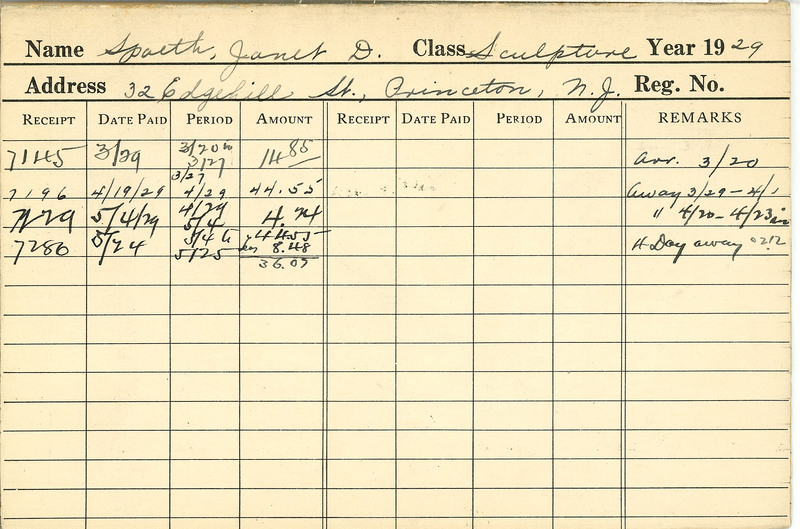 Name Spaeth, Janet D. Class Sculpture Year 1929
Address 32 Edgehill St., Princeton, N.J. Reg. No.
RECEIPT DATE PAID PERIOD AMOUNT RECEIPT DATE PAID PERIOD AMOUNT REMARKS
7145 3/29 3/20 to 3/27 14.85 Arr. 3/20
7196 4/19/29 3/27 4/29 44.55 Away 3/29-4/1
5/4/29 4/29 5/4 " 4/20-4/23
7286 5/24 5/4 to 5/25 44.55 8.48 4 Day away
36.07